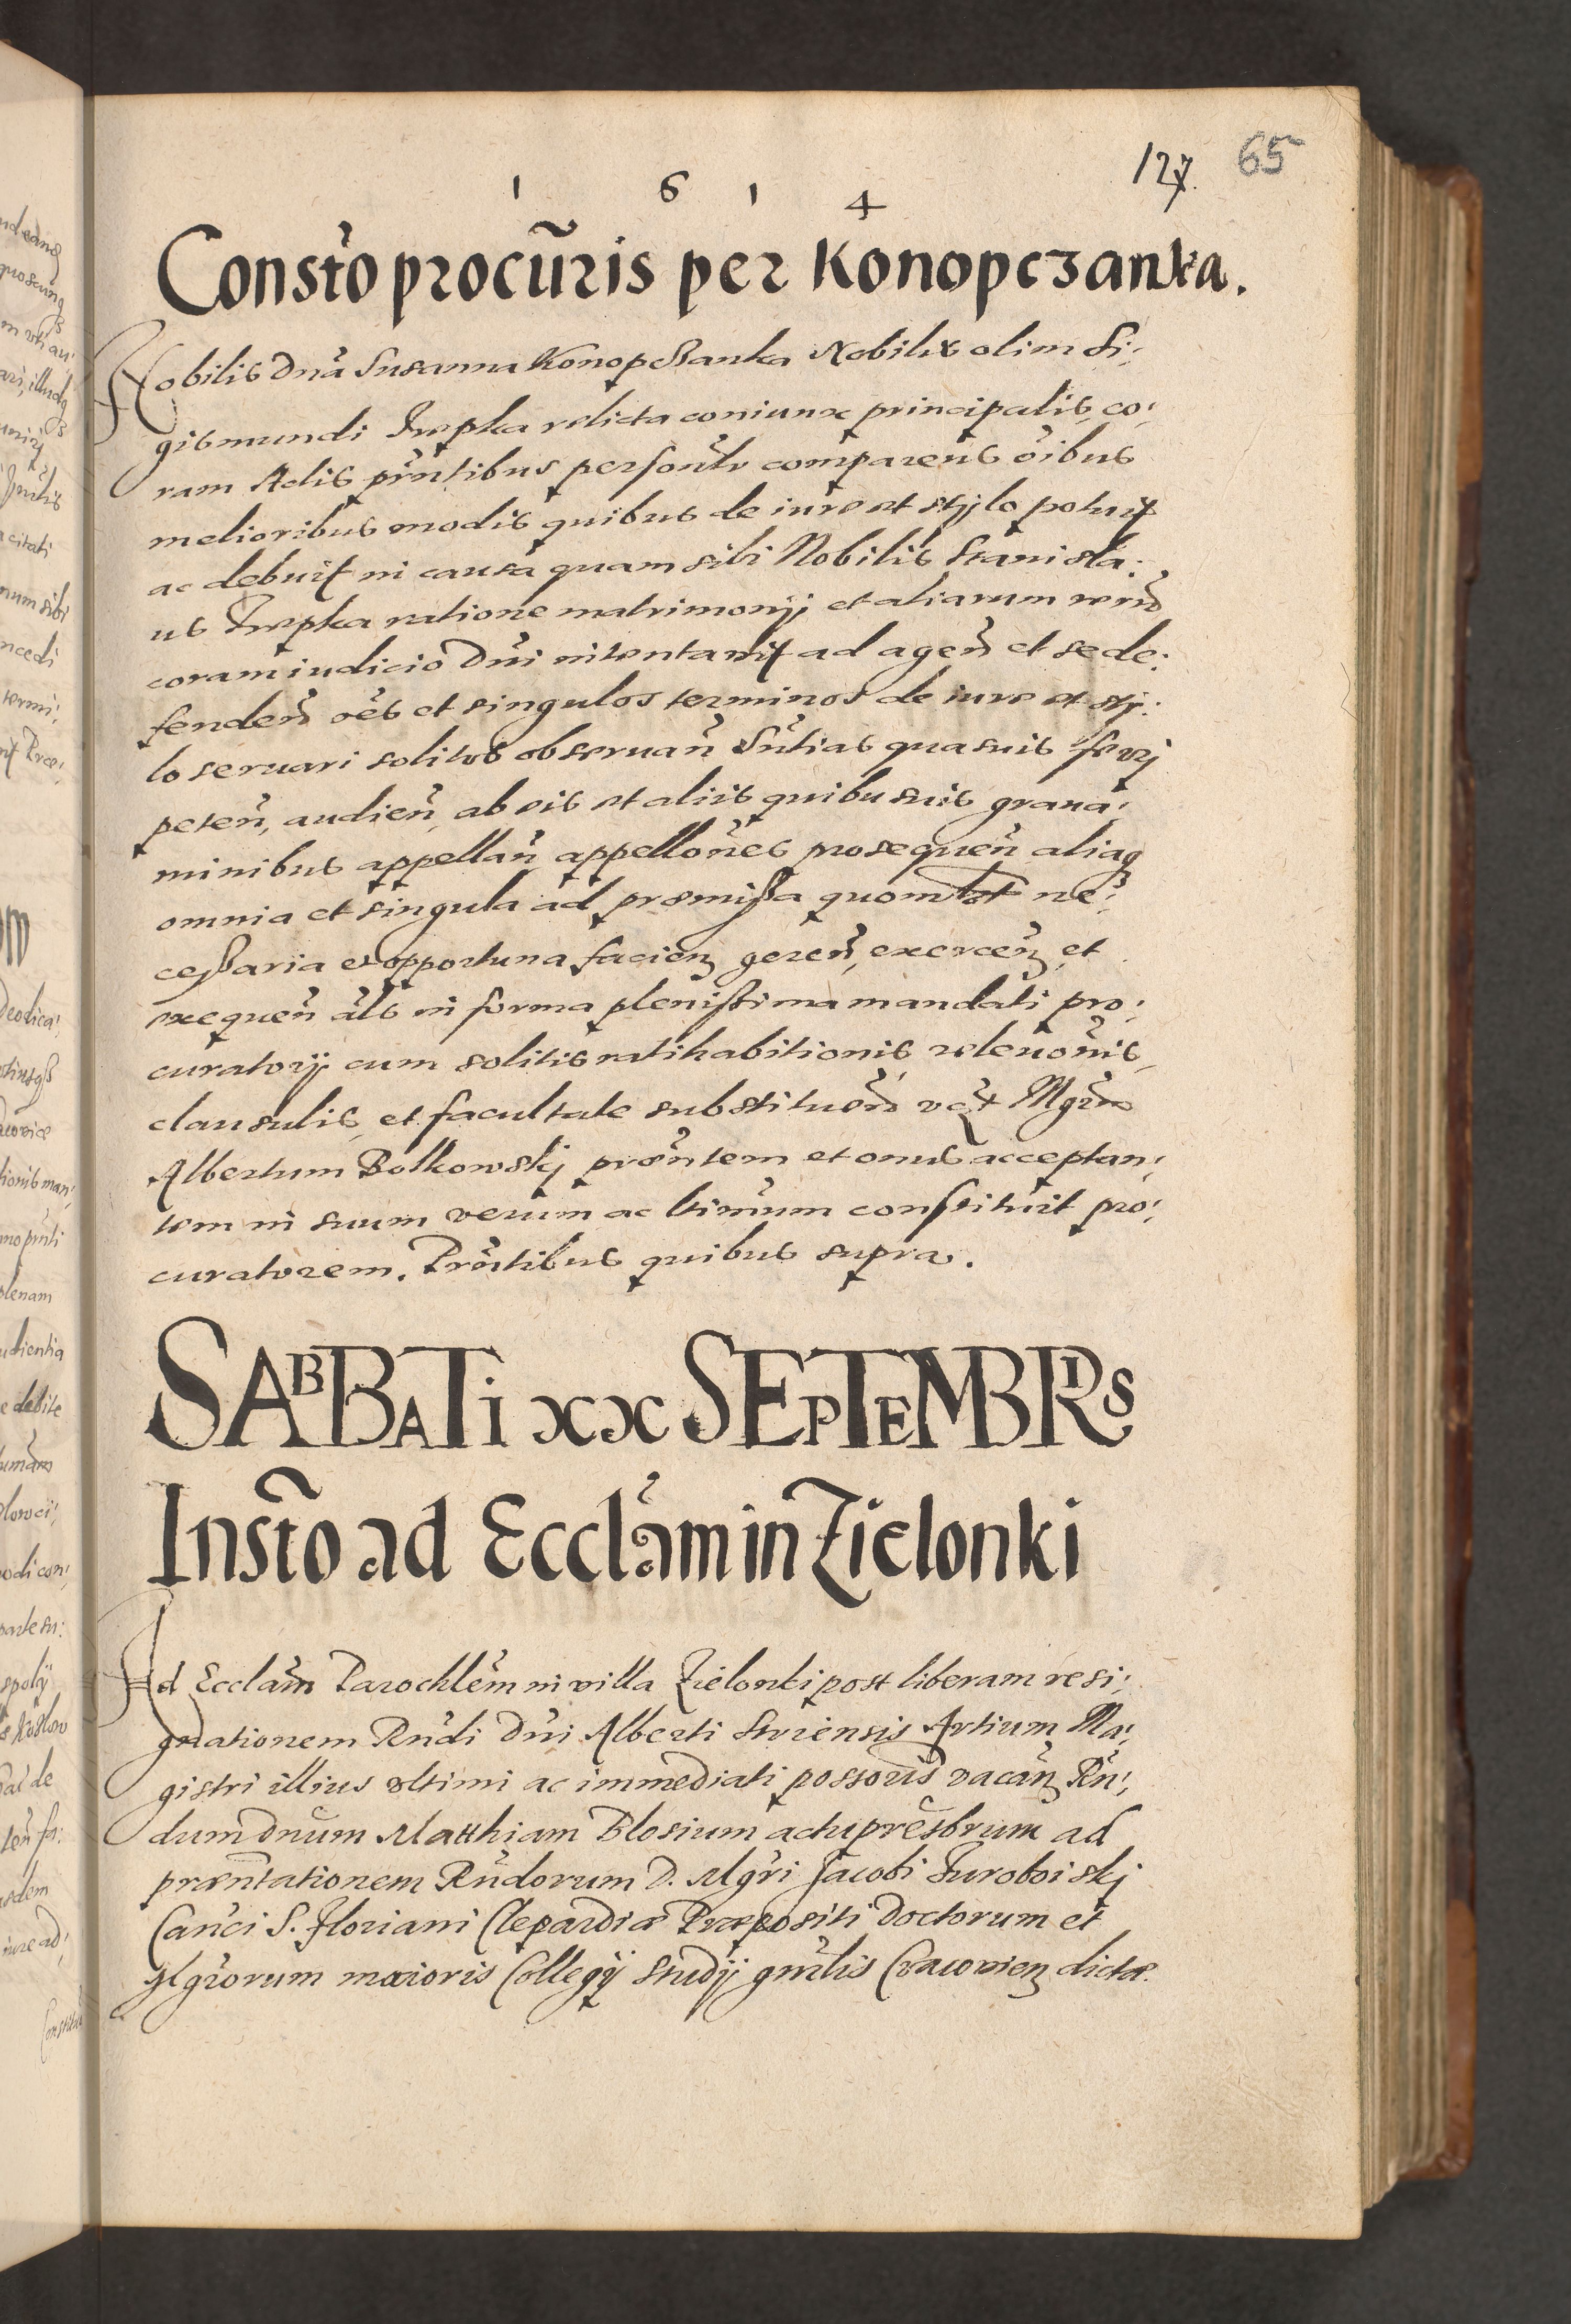 127. 65
1 6 1 4
Consto procuris per Konopczanka.
Nobilis Dna Susanna Konopczanka Nobilis olim Si;
gismundi Trepka relicta coniunx principalis, co;
ram Actis pntibus personlr comparens oibus
melioribus modis quibus de iure et stylo potuit
ac debuit in causa quam sibi Nobilis Stanisla:
us Trepka ratione matrimonij et aliarum rerum
coram iudicio Dni intentavit ad agen et se de:
fenden oes et singulos terminos de iure et sty:
lo seruari solitos obseruan Sntias quasuis ferrj
peten, audien, ab eis et aliis quibusuis graua;
minibus appellan appellones prosequen aliaq
omnia et singula ad præmissa quomlot ne;
cessaria et opportuna facien geren, exercen, et
exequen als in forma plenissima mandati pro;
curatorij cum solitis ratihabitionis, releuonis,
clausulis, et facultate substituen Mgrm
Albertum Bolkowskj præntem et onus acceptan;
tem in suum verum ac ltimum constituit pro;
curatorem. Præntibus quibus supra.
SABBATi xx SEPTEMBRIS
Insto ad Ecclam in Zielonki
Ad Ecclam Parochlem in villa Zielonki post liberam resi;
gnationem Rndi Dni Alberti Artium Ma;
gistri illius vltimi ac immediati possoris vacan Rn;
dum Dnum Matthiam Blosium actu presbrum ad
præntationem Rndorum D. Mgri Jacobi Turoboiskj
Canci S. Floriani Clepardiæ Præpositi Doctorum et
Mgrorum maioris Collegij Studij gnrlis Cracovien dictæ